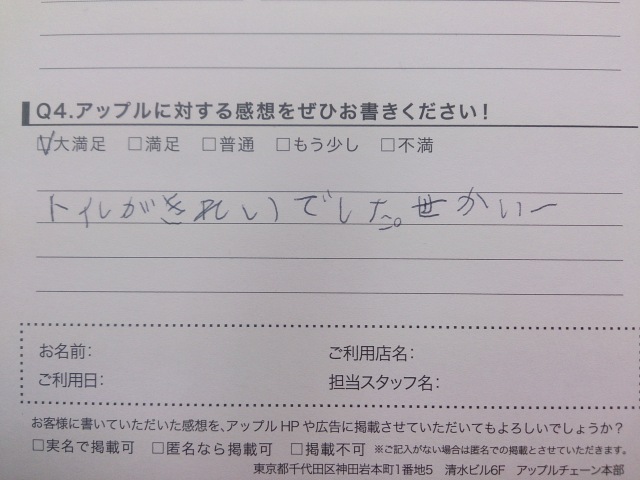 Q4.アップルに対する感想をぜひお書きください！
☑大満足 □満足 □普通 □もう少し □不満
トイレがきれいでした。世かいー
お名前： ご利用店名：
ご利用日： 担当スタッフ名：
お客様に書いていただいた感想を、アップルHPや広告に掲載させていただいてもよろしいでしょうか？
□実名で掲載可 □匿名なら掲載可 □掲載不可 ※ご記入がない場合は匿名での掲載とさせていただきます。
東京都千代田区神田岩本町1番地5 清水ビル6F アップルチェーン本部